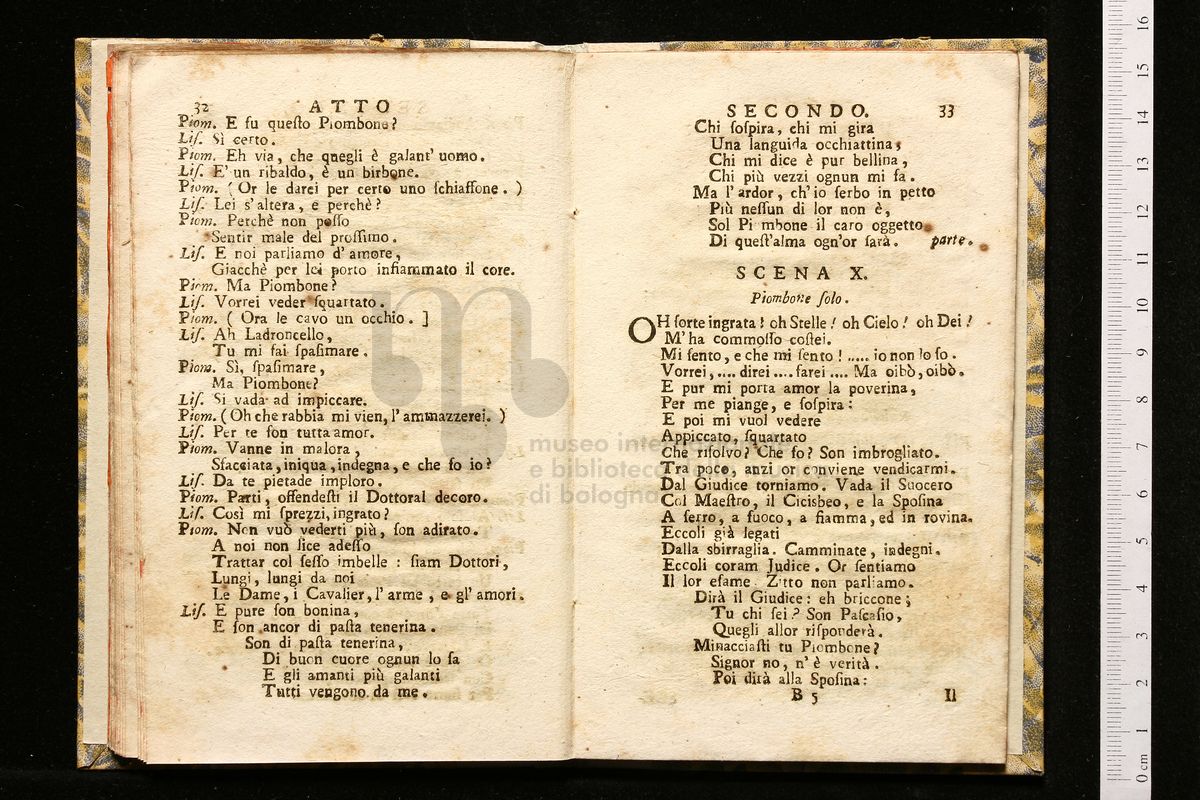 32 ATTO
Piom. E fu queſto Piombone?
Liſ. Sì certo.
Piom. Eh via, che quegli è galant' uomo.
Liſ. E' un ribaldo, è un birbone.
Piom. (Or le darei per certo uno ſchiaffone.)
Liſ. Lei s'altera, e perchè?
Piom. Perchè non poſſo
Sentir male del proſſimo.
Liſ. E noi parliamo d'amore,
Giacchè per lei porto infiammato il core.
Piom. Ma Piombone?
Liſ. Vorrei veder ſquartato.
Piom. (Ora le cavo un occhio.]
Liſ. Ah Ladroncello,
Tu mi fai ſpaſimare.
Piom. Sì, ſpaſimare,
Ma Piombone?
Liſ. Si vada ad impiccare.
Piom. (Oh che rabbia mi vien, l'ammazzerei.)
Liſ. Per te ſon tutta amor.
Piom. Vanne in malora,
Sfacciata, iniqua, indegna, e che ſo io?
Liſ. Da te pietade imploro.
Piom. Parti, offendeſti il Dottoral decoro.
Liſ. Così mi ſprezzi, ingrato?
Piom. Non vuò vederti più, ſon adirato.
A noi non lice adeſſo
Trattar col ſeſſo imbelle: ſiam Dottori,
Lungi, lungi da noi
Le Dame, i Cavalier, l'arme, e gl'amori.
Liſ. E pure ſon bonina,
E ſon ancor di paſta tenerina.
Son di paſta tenerina,
Di buon cuore ognun lo ſa
E gli amanti più galanti
Tutti vengono da me.
SECONDO. 33
Chi ſoſpira, chi mi gira
Una languida occhiattina,
Chi mi dice è pur bellina,
Chi più vezzi ognun mi fa.
Ma l'ardor, ch'io ſerbo in petto
Più neſſun di lor non è,
Sol Pi mbone il caro oggetto
Di queſt'alma ogn'or ſarà. parte.
SCENA X.
Piombone ſolo.
OH ſorte ingrata! oh Stelle! oh Cielo! oh Dei!
M'ha commoſſo coſtei.
Mi ſento, e che mi ſento! ..... io non lo ſo.
Vorrei, .... direi .... farei .... Ma oibò, oibò.
E pur mi porta amor la poverina,
Per me piange, e ſoſpira:
E poi mi vuol vedere
Appiccato, ſquartato
Che riſolvo? Che fo? Son imbrogliato.
Tra poco, anzi or conviene vendicarmi.
Dal Giudice torniamo. Vada il Suocero
Col Maeſtro, il Cicisbeo, e la Spoſina
A ferro, a fuoco, a fiamma, ed in rovina.
Eccoli già legati
Dalla sbirraglia. Camminate, indegni.
Eccoli coram Judice. Or ſentiamo
Il lor eſame. Zitto non parliamo.
Dirà il Giudice: eh briccone;
Tu chi ſei? Son Paſcaſio,
Quegli allor riſponderà.
Minacciaſti tu Piombone?
Signor no, n'è verità.
Poi dirà alla Spoſina:
B 5 Il
museo inte
e biblioteca
di bologna
16
15
14
13
12
11
10
9
8
7
6
5
4
3
2
1
0 cm